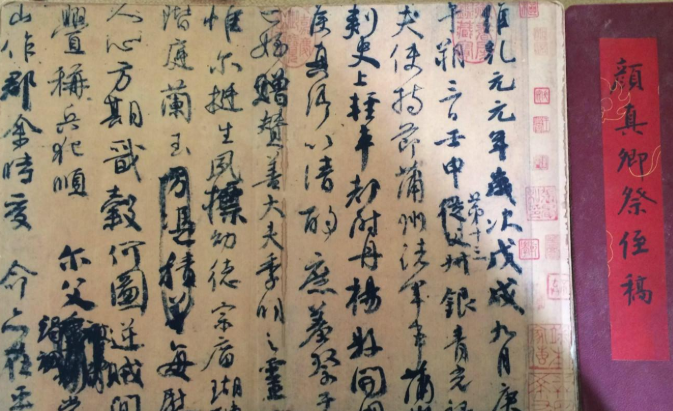 顏真卿祭侄稿
維乾元元年歲次戊戌九月庚
午朔三日壬申第十三從父叔銀青光祿
夫使持節蒲州諸軍事蒲州
刺史上輕車都尉丹楊縣開國
侯真卿以清酌庶羞祭于
亡姪贈贊善大夫季明之靈
惟爾挺生夙標幼德宗廟瑚
階庭蘭玉方憑積善每慰
人心方期戩穀何圖逆賊間
釁稱兵犯順 爾父
山作郡余時受命亦在平